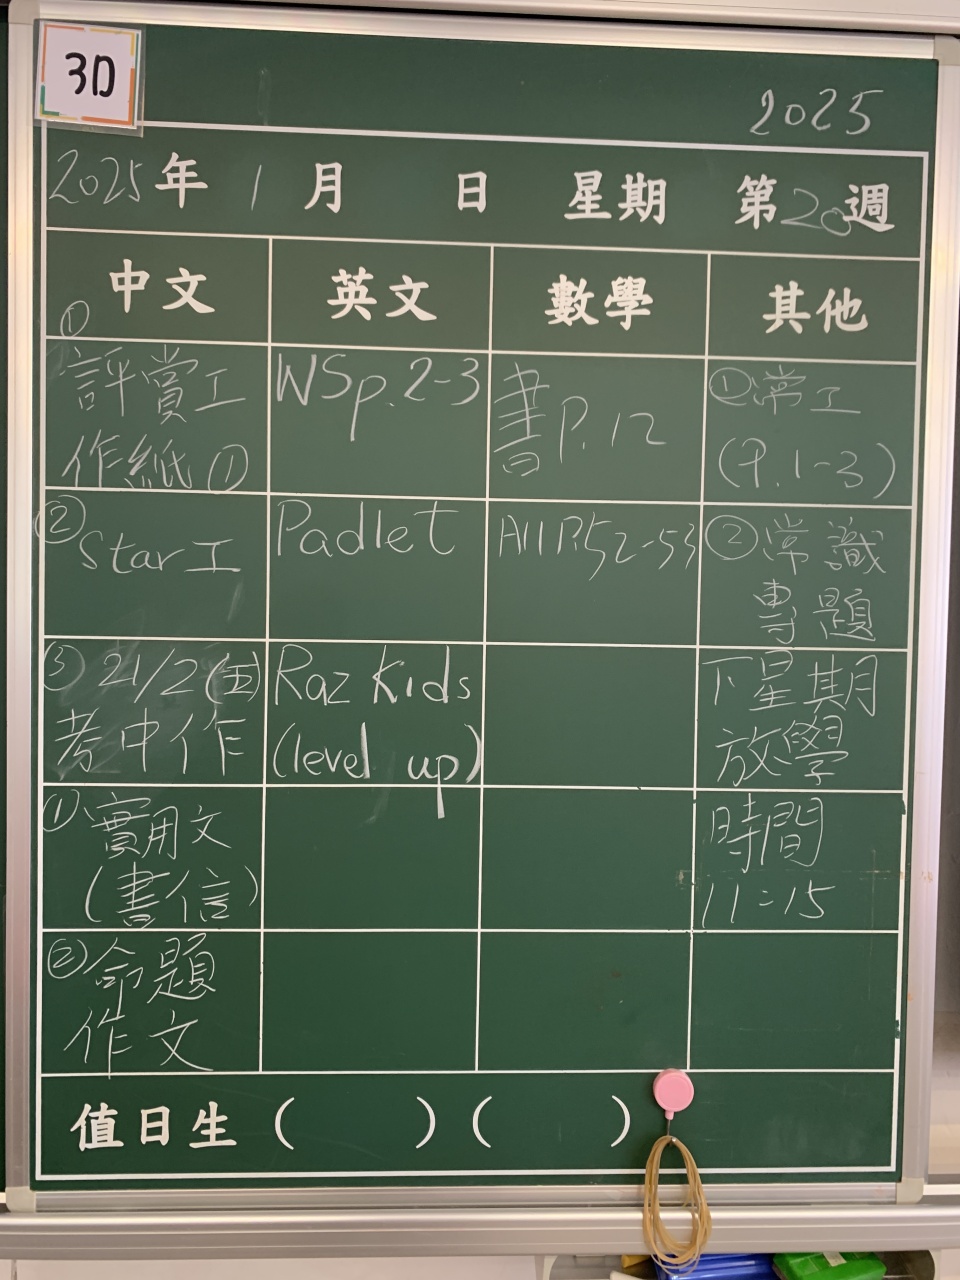 3D
2025
2025年 1 月 日 星期 第20週
中文 英文 數學 其他
① 評賞工
作紙①
WSp.2-3
書P.12
①常工
(P.1-3)
② Star工
Padlet
A11P.52-53
②常識
專題
③ 21/2(五)
考中作
Raz Kids
(level up)
下星期月
放學
①實用文
(書信)
時間
11:15
②命題
作文
值日生 ( ) ( )